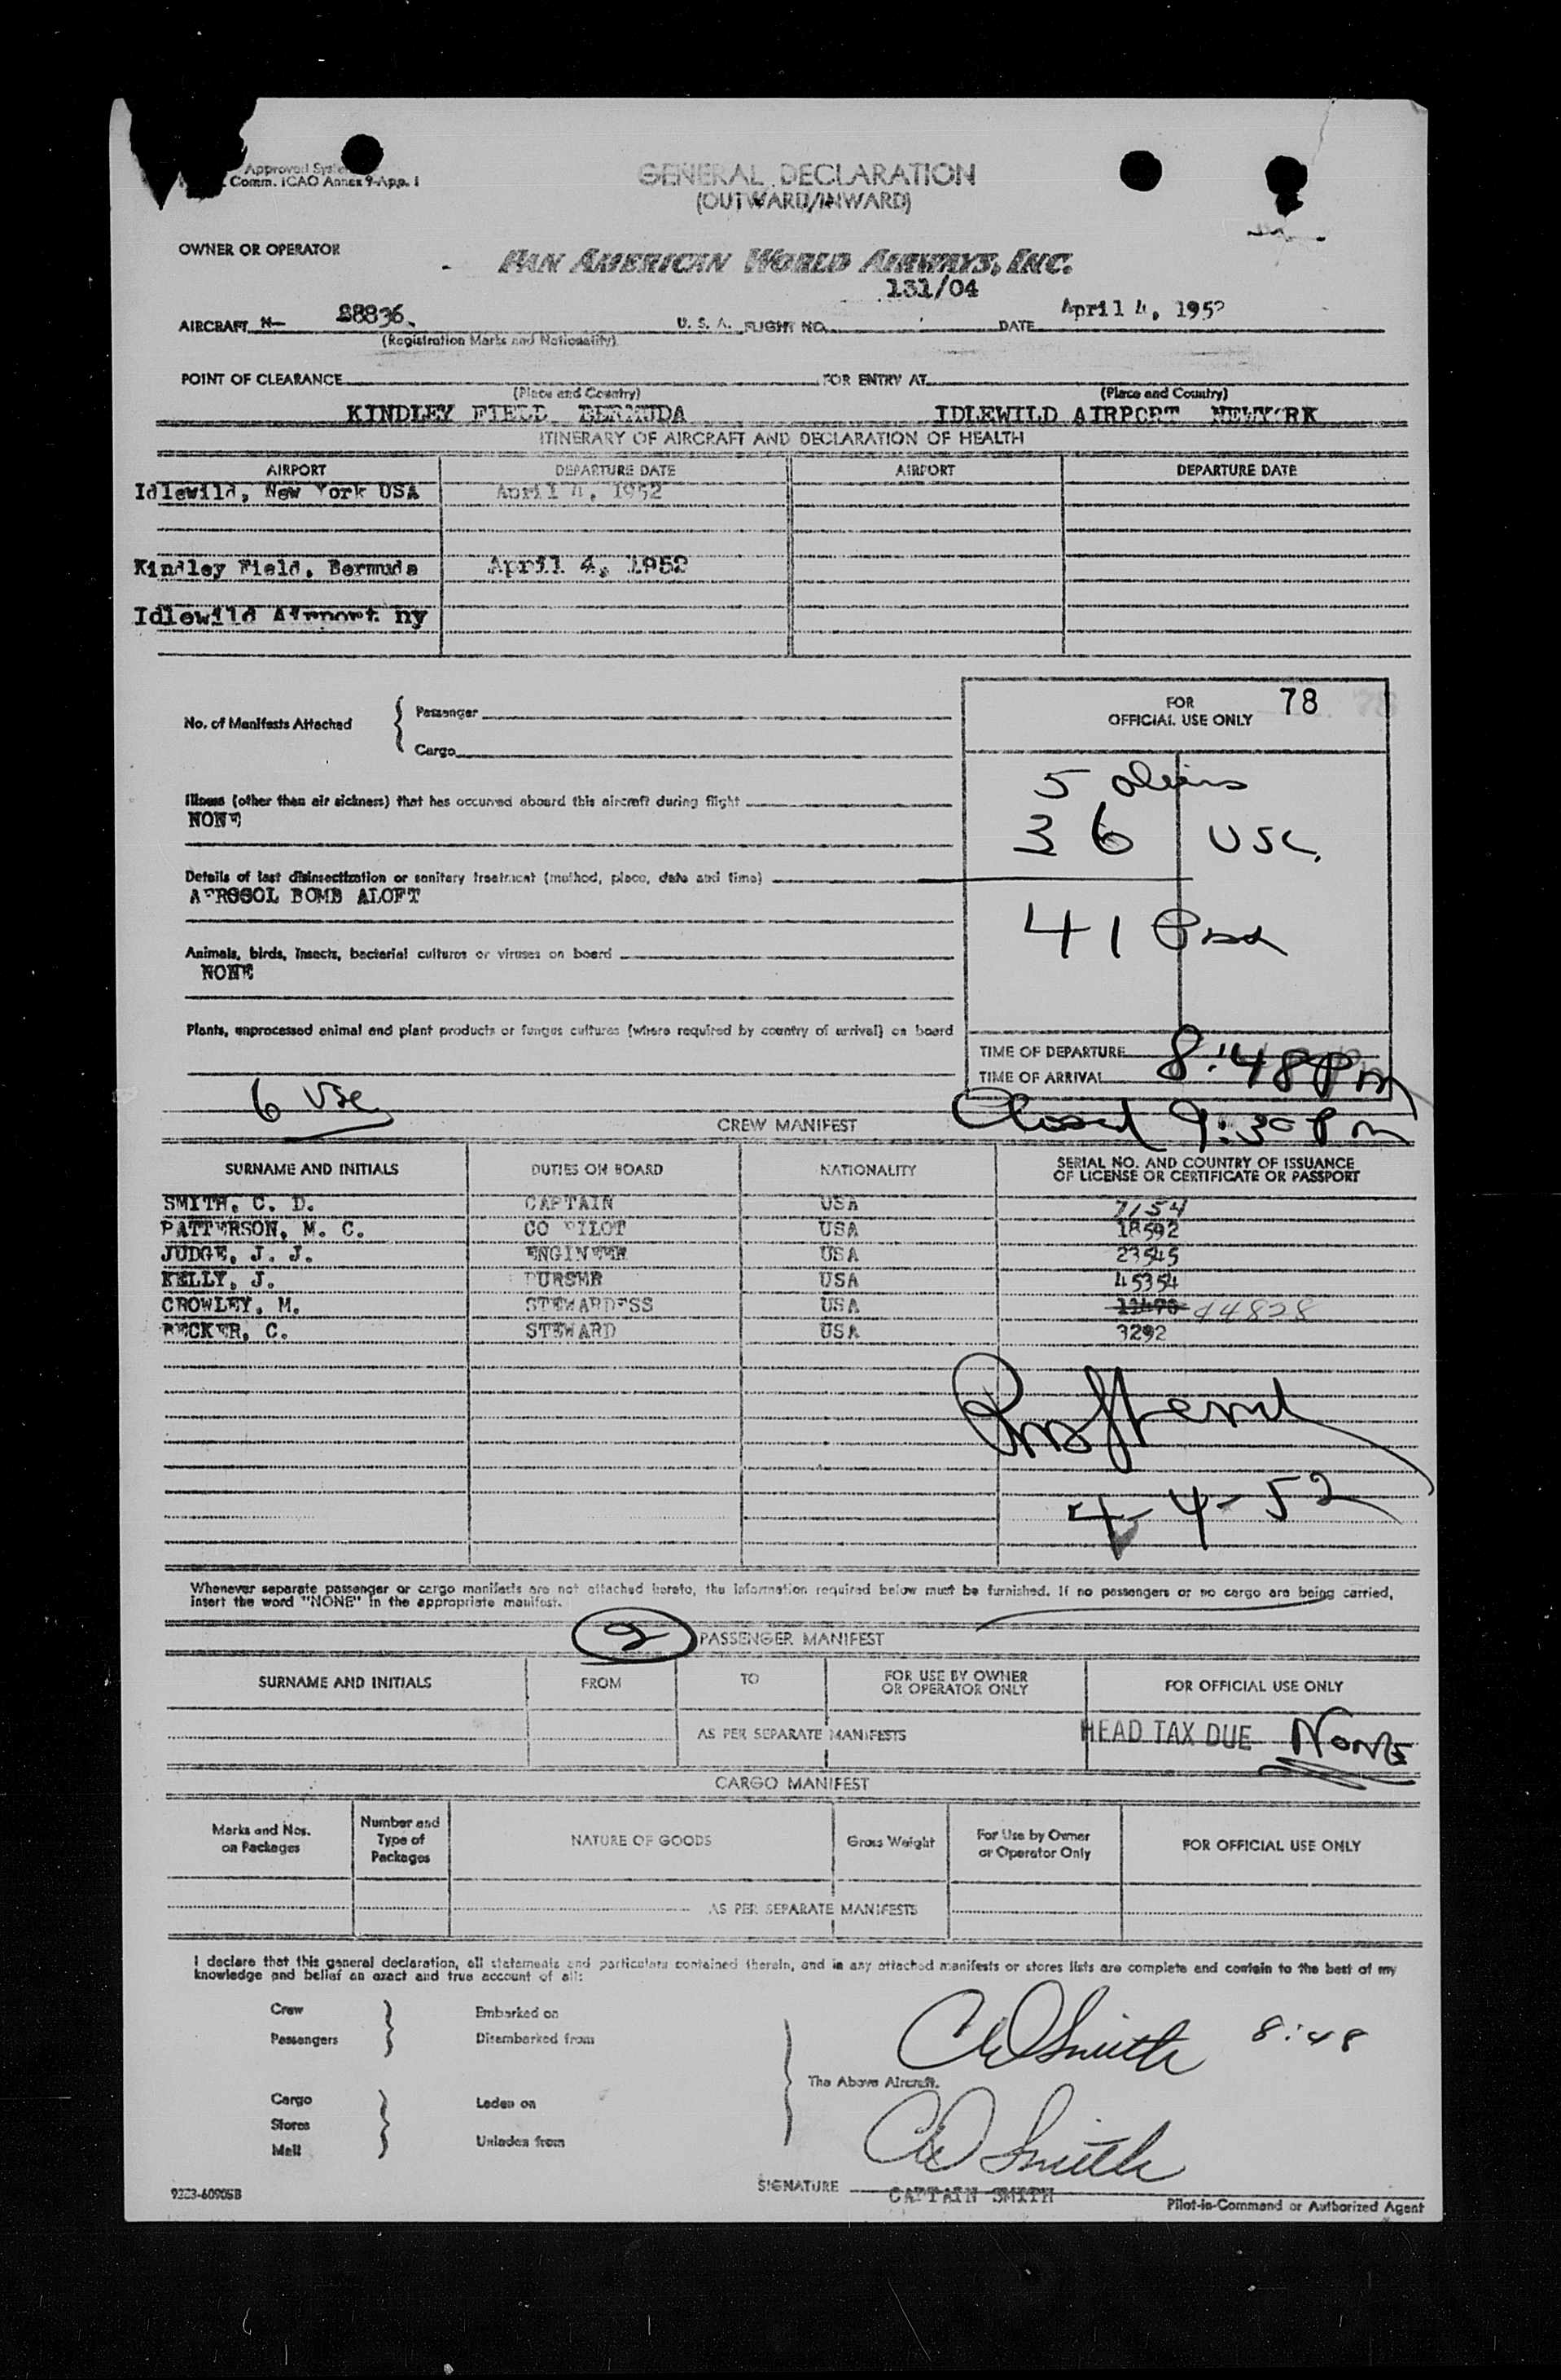 Approved
Comm. ICAO Annex 9-App. 1
GENERAL DECLARATION
(OUTWARD/INWARD)
OWNER OR OPERATOR
PAN AMERICAN WORLD AIRWAYS, INC.
131/04
AIRCRAFT N- 88836 U. S. A. FLIGHT NO. DATE April 4, 1952
(Registration Marks and Nationality)
POINT OF CLEARANCE FOR ENTRY AT
(Place and Country) (Place and Country)
KINDLEY FIELD BERMUDA IDLEWILD AIRPORT NEWYORK
ITINERARY OF AIRCRAFT AND DECLARATION OF HEALTH
AIRPORT DEPARTURE DATE AIRPORT DEPARTURE DATE
Idlewild, New York USA April 4, 1952
Kindley Field, Bermuda April 4, 1952
Idlewild Airport ny
No. of Manifests Attached
Passenger
Cargo
FOR OFFICIAL USE ONLY 78
5 aliens
36 USC.
41 Pass
Illness (other than air sickness) that has occurred aboard this aircraft during flight
NONE
Details of last disinsectization or sanitary treatment (method, place, date and time)
AEROSOL BOMB ALOFT
Animals, birds, insects, bacterial cultures or viruses on board
NONE
Plants, unprocessed animal and plant products or fungus cultures (where required by country of arrival) on board
TIME OF DEPARTURE
TIME OF ARRIVAL 8:48 Pm
6 USC
Closed 9:30 Pm
CREW MANIFEST
SURNAME AND INITIALS DUTIES ON BOARD NATIONALITY SERIAL NO. AND COUNTRY OF ISSUANCE OF LICENSE OR CERTIFICATE OR PASSPORT
SMITH, C. D. CAPTAIN USA 7154
PATTERSON, M. C. CO PILOT USA 18592
JUDGE, J. J. ENGINEER USA 23545
KELLY, J. PURSER USA 45354
CROWLEY, M. STEWARDESS USA 44828
BECKER, C. STEWARD USA 3292
4-4-52
Whenever separate passenger or cargo manifests are not attached hereto, the information required below must be furnished. If no passengers or no cargo are being carried,
insert the word "NONE" in the appropriate manifest.
2 PASSENGER MANIFEST
SURNAME AND INITIALS FROM TO FOR USE BY OWNER OR OPERATOR ONLY FOR OFFICIAL USE ONLY
AS PER SEPARATE MANIFESTS HEAD TAX DUE None
CARGO MANIFEST
Marks and Nos. on Packages Number and Type of Packages NATURE OF GOODS Gross Weight For Use by Owner or Operator Only FOR OFFICIAL USE ONLY
AS PER SEPARATE MANIFESTS
I declare that this general declaration, all statements and particulars contained therein, and in any attached manifests or stores lists are complete and contain to the best of my
knowledge and belief an exact and true account of all:
Crew Embarked on
Passengers Disembarked from
CDSmith 8:48
The Above Aircraft.
Cargo Laden on
Stores
Mail Unladen from
CD Smith
SIGNATURE CAPTAIN SMITH
9323-60905B Pilot-in-Command or Authorized Agent